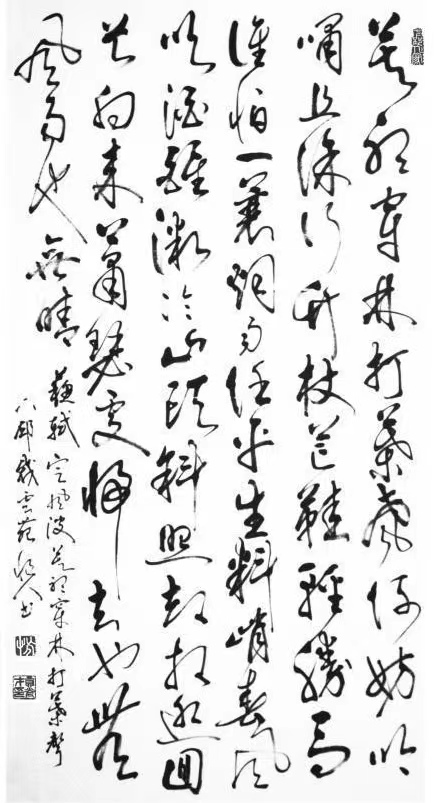 莫聽穿林打葉聲何妨吟
嘯且徐行竹杖芒鞋輕勝馬
誰怕一蓑烟雨任平生料峭春風
吹酒醒微冷山頭斜照却相迎回
首向來蕭瑟處歸去也無
風雨也無晴
蘇軾定風波莫聽穿林打葉聲
雲人書